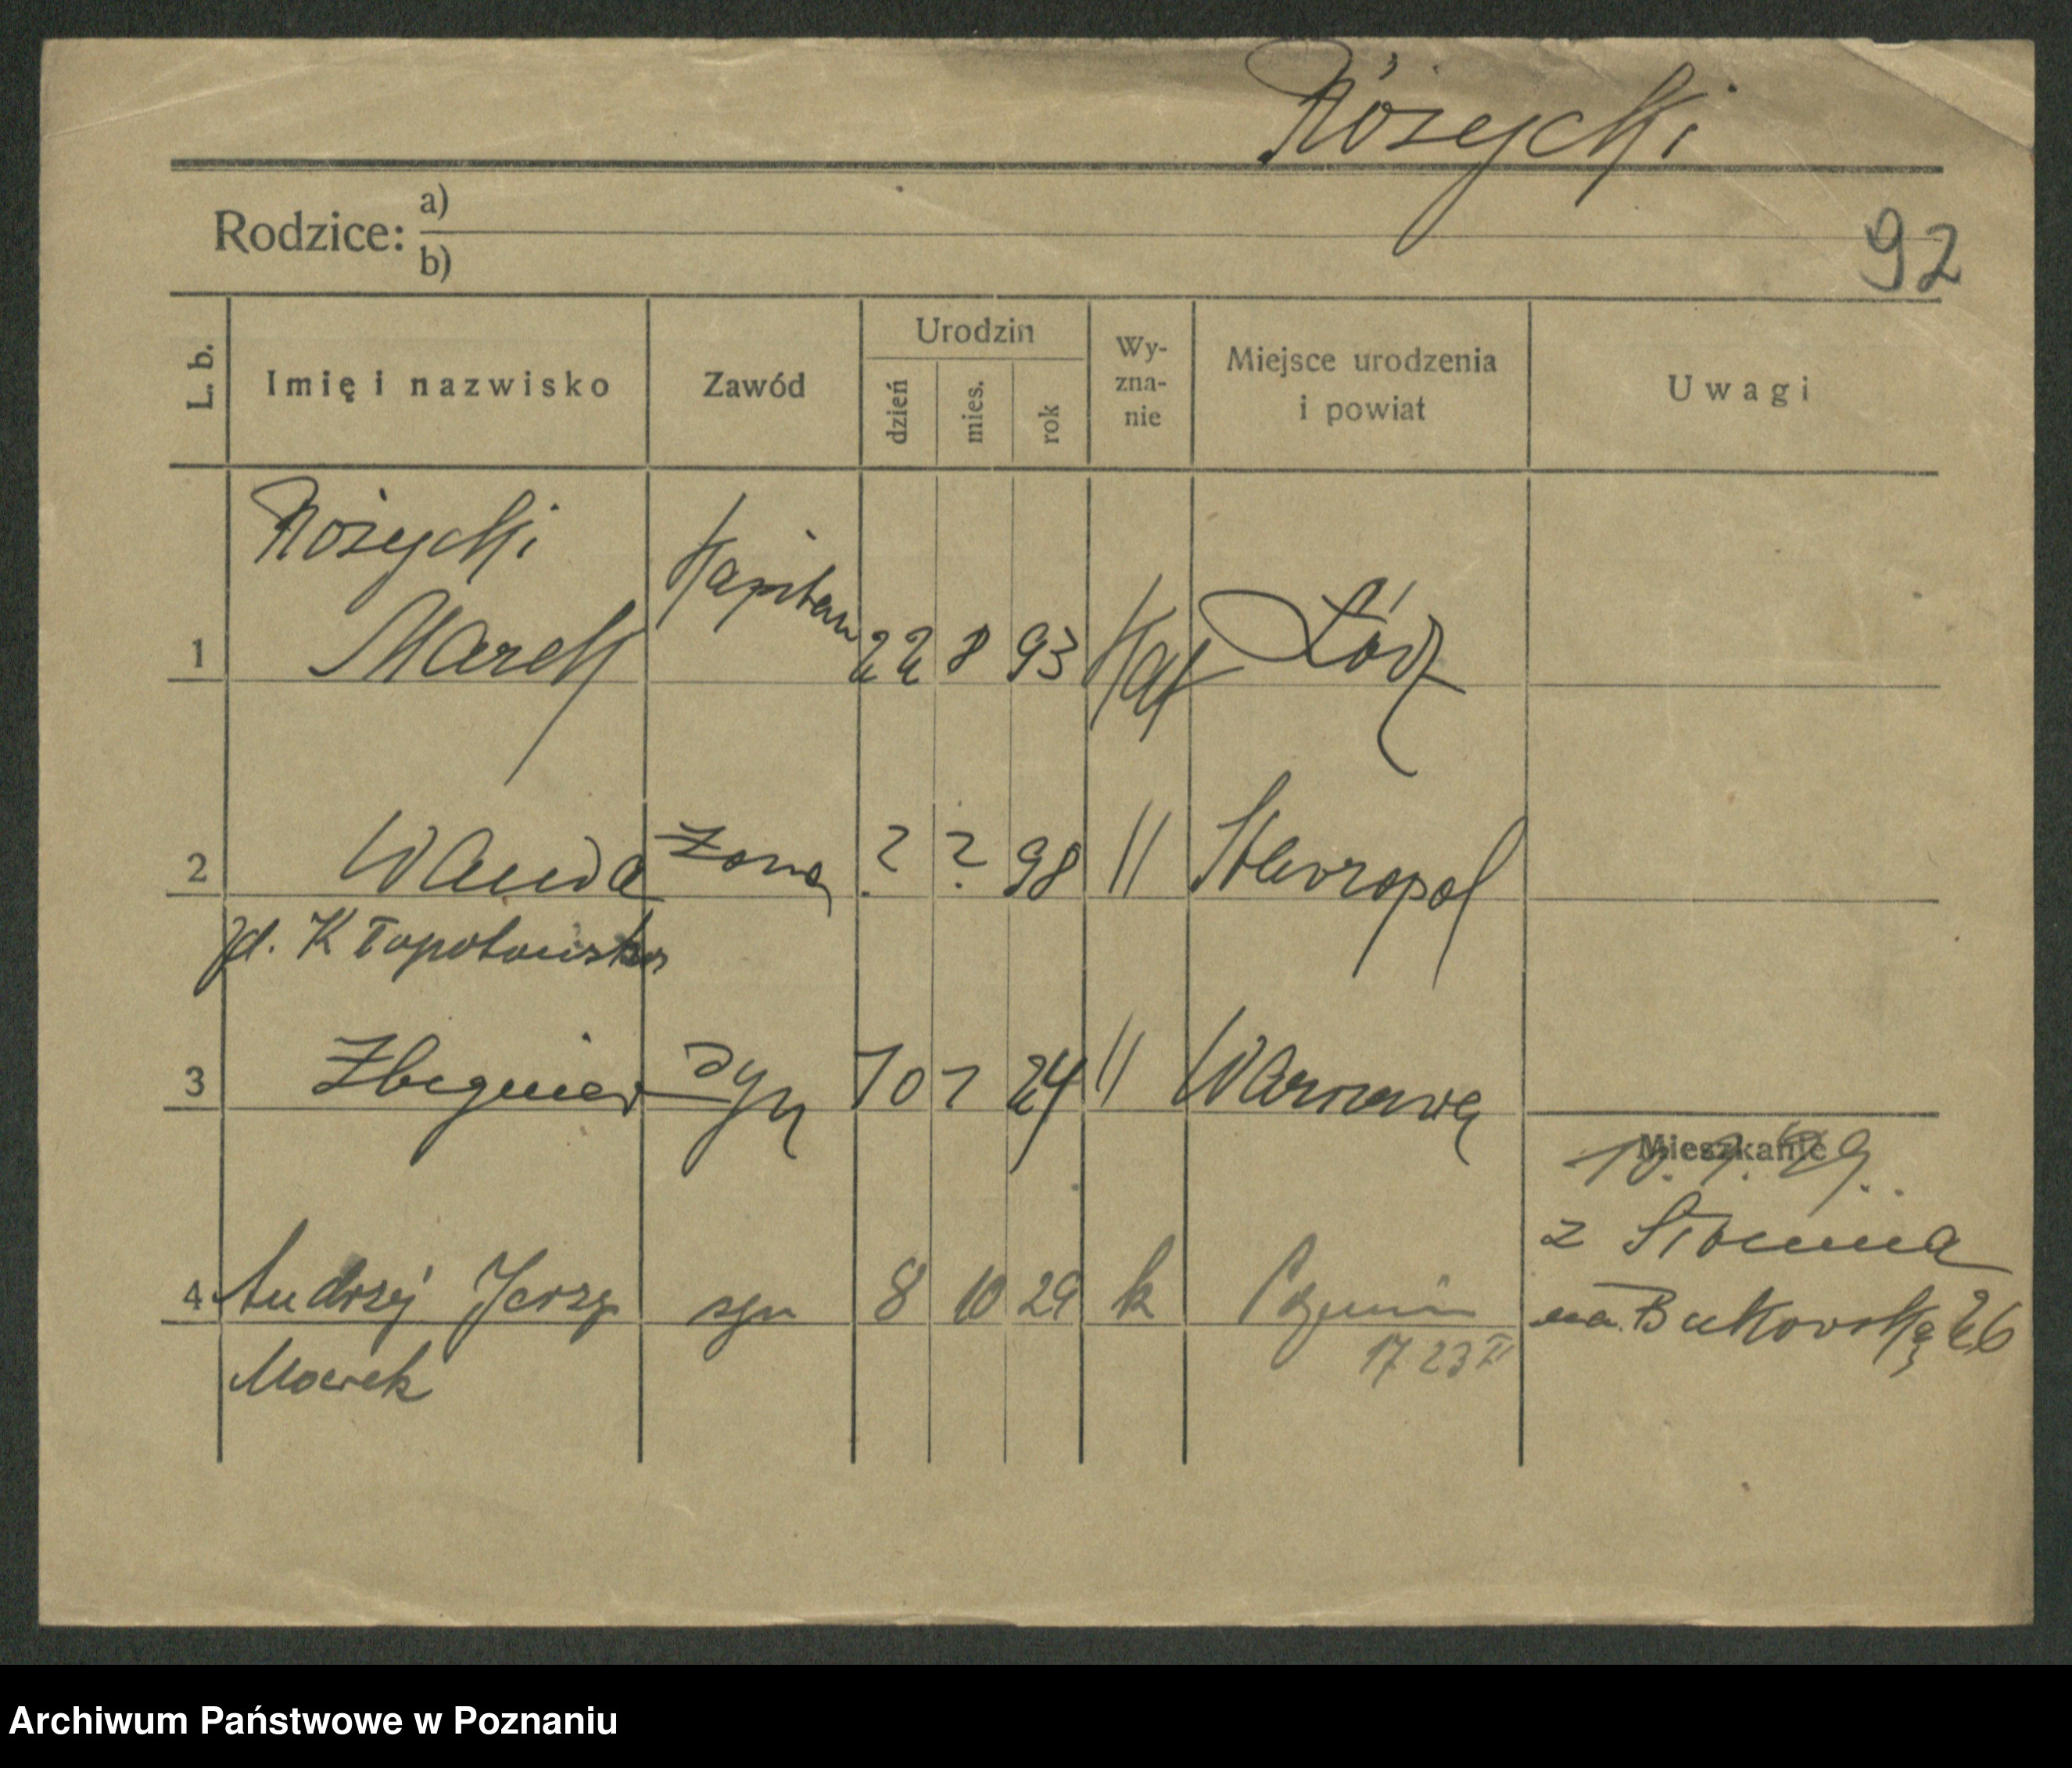 Różycki
Rodzice: a)
b)
92
L. b. Imię i nazwisko Zawód Urodzin dzień mies. rok Wy-zna-nie Miejsce urodzenia i powiat Uwagi
Rożycki
1 Marek Kapitan 22 8 93 Kat Łódź
2 Wanda żona ? ? 98 11 Stavropol
3 Zbigniew syn 10 7 24 11 Warszawa
Mieszkanie
10. 7. 29.
z Słonima
4 Andrzej Jerzy syn 8 10 29 k na Bukowską 26
17 23
Marek
Archiwum Państwowe w Poznaniu